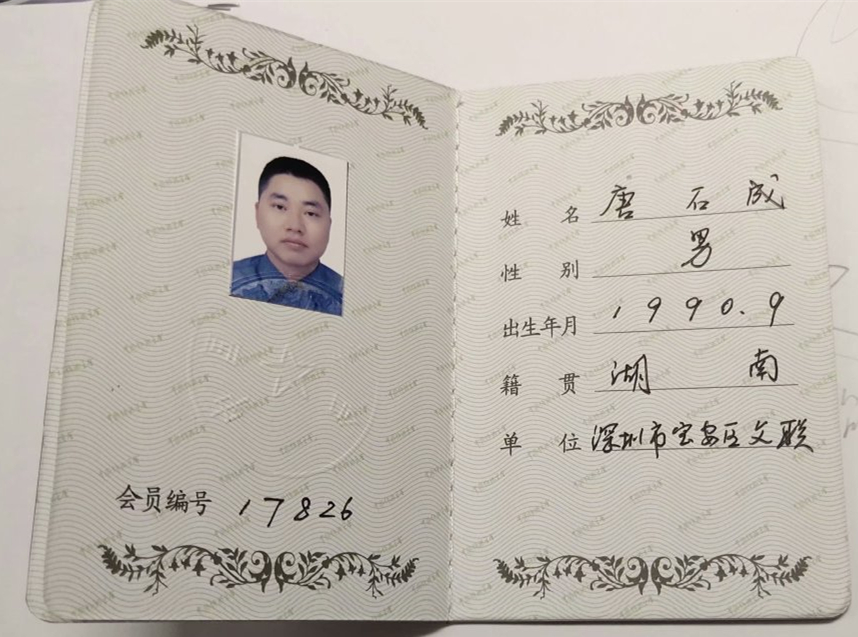 会员编号 17826
姓名 唐石成
性别 男
出生年月 1990.9
籍贯 湖南
单位 深圳市宝安区文联